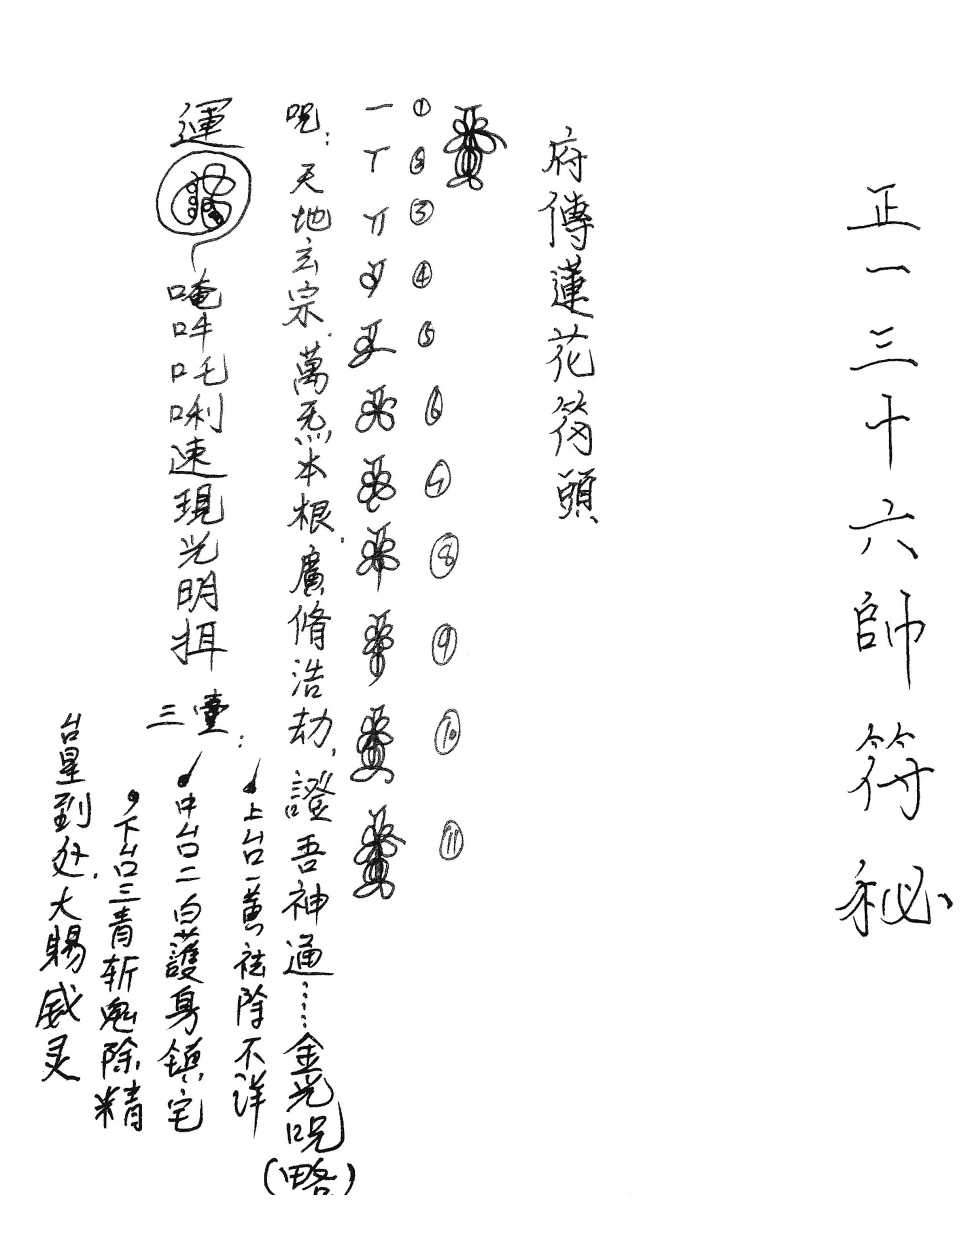 正一三十六帥符秘
府傳蓮花符頭
① ② ③ ④ ⑤ ⑥ ⑦ ⑧ ⑨ ⑩ ⑪
呪：天地玄宗.萬炁本根.廣脩浩劫.證吾神通……金光呪(略)
運
唵吽吒唎速現光明揖
三臺：
上台一黃祛除不洋
中台二白護身鎮宅
下台三青斬鬼除精
台星到处.大賜威灵